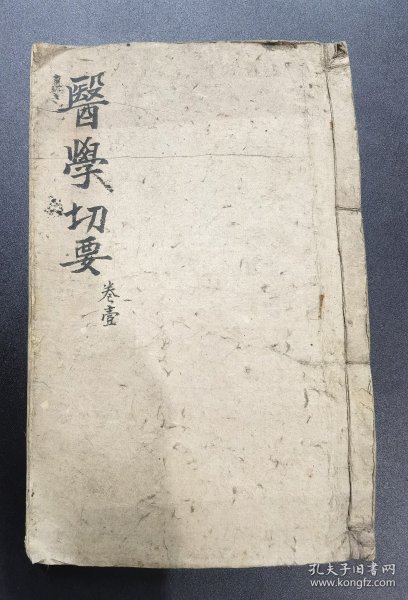 醫學切要
卷壹
孔夫子旧书网
www.kongfz.com